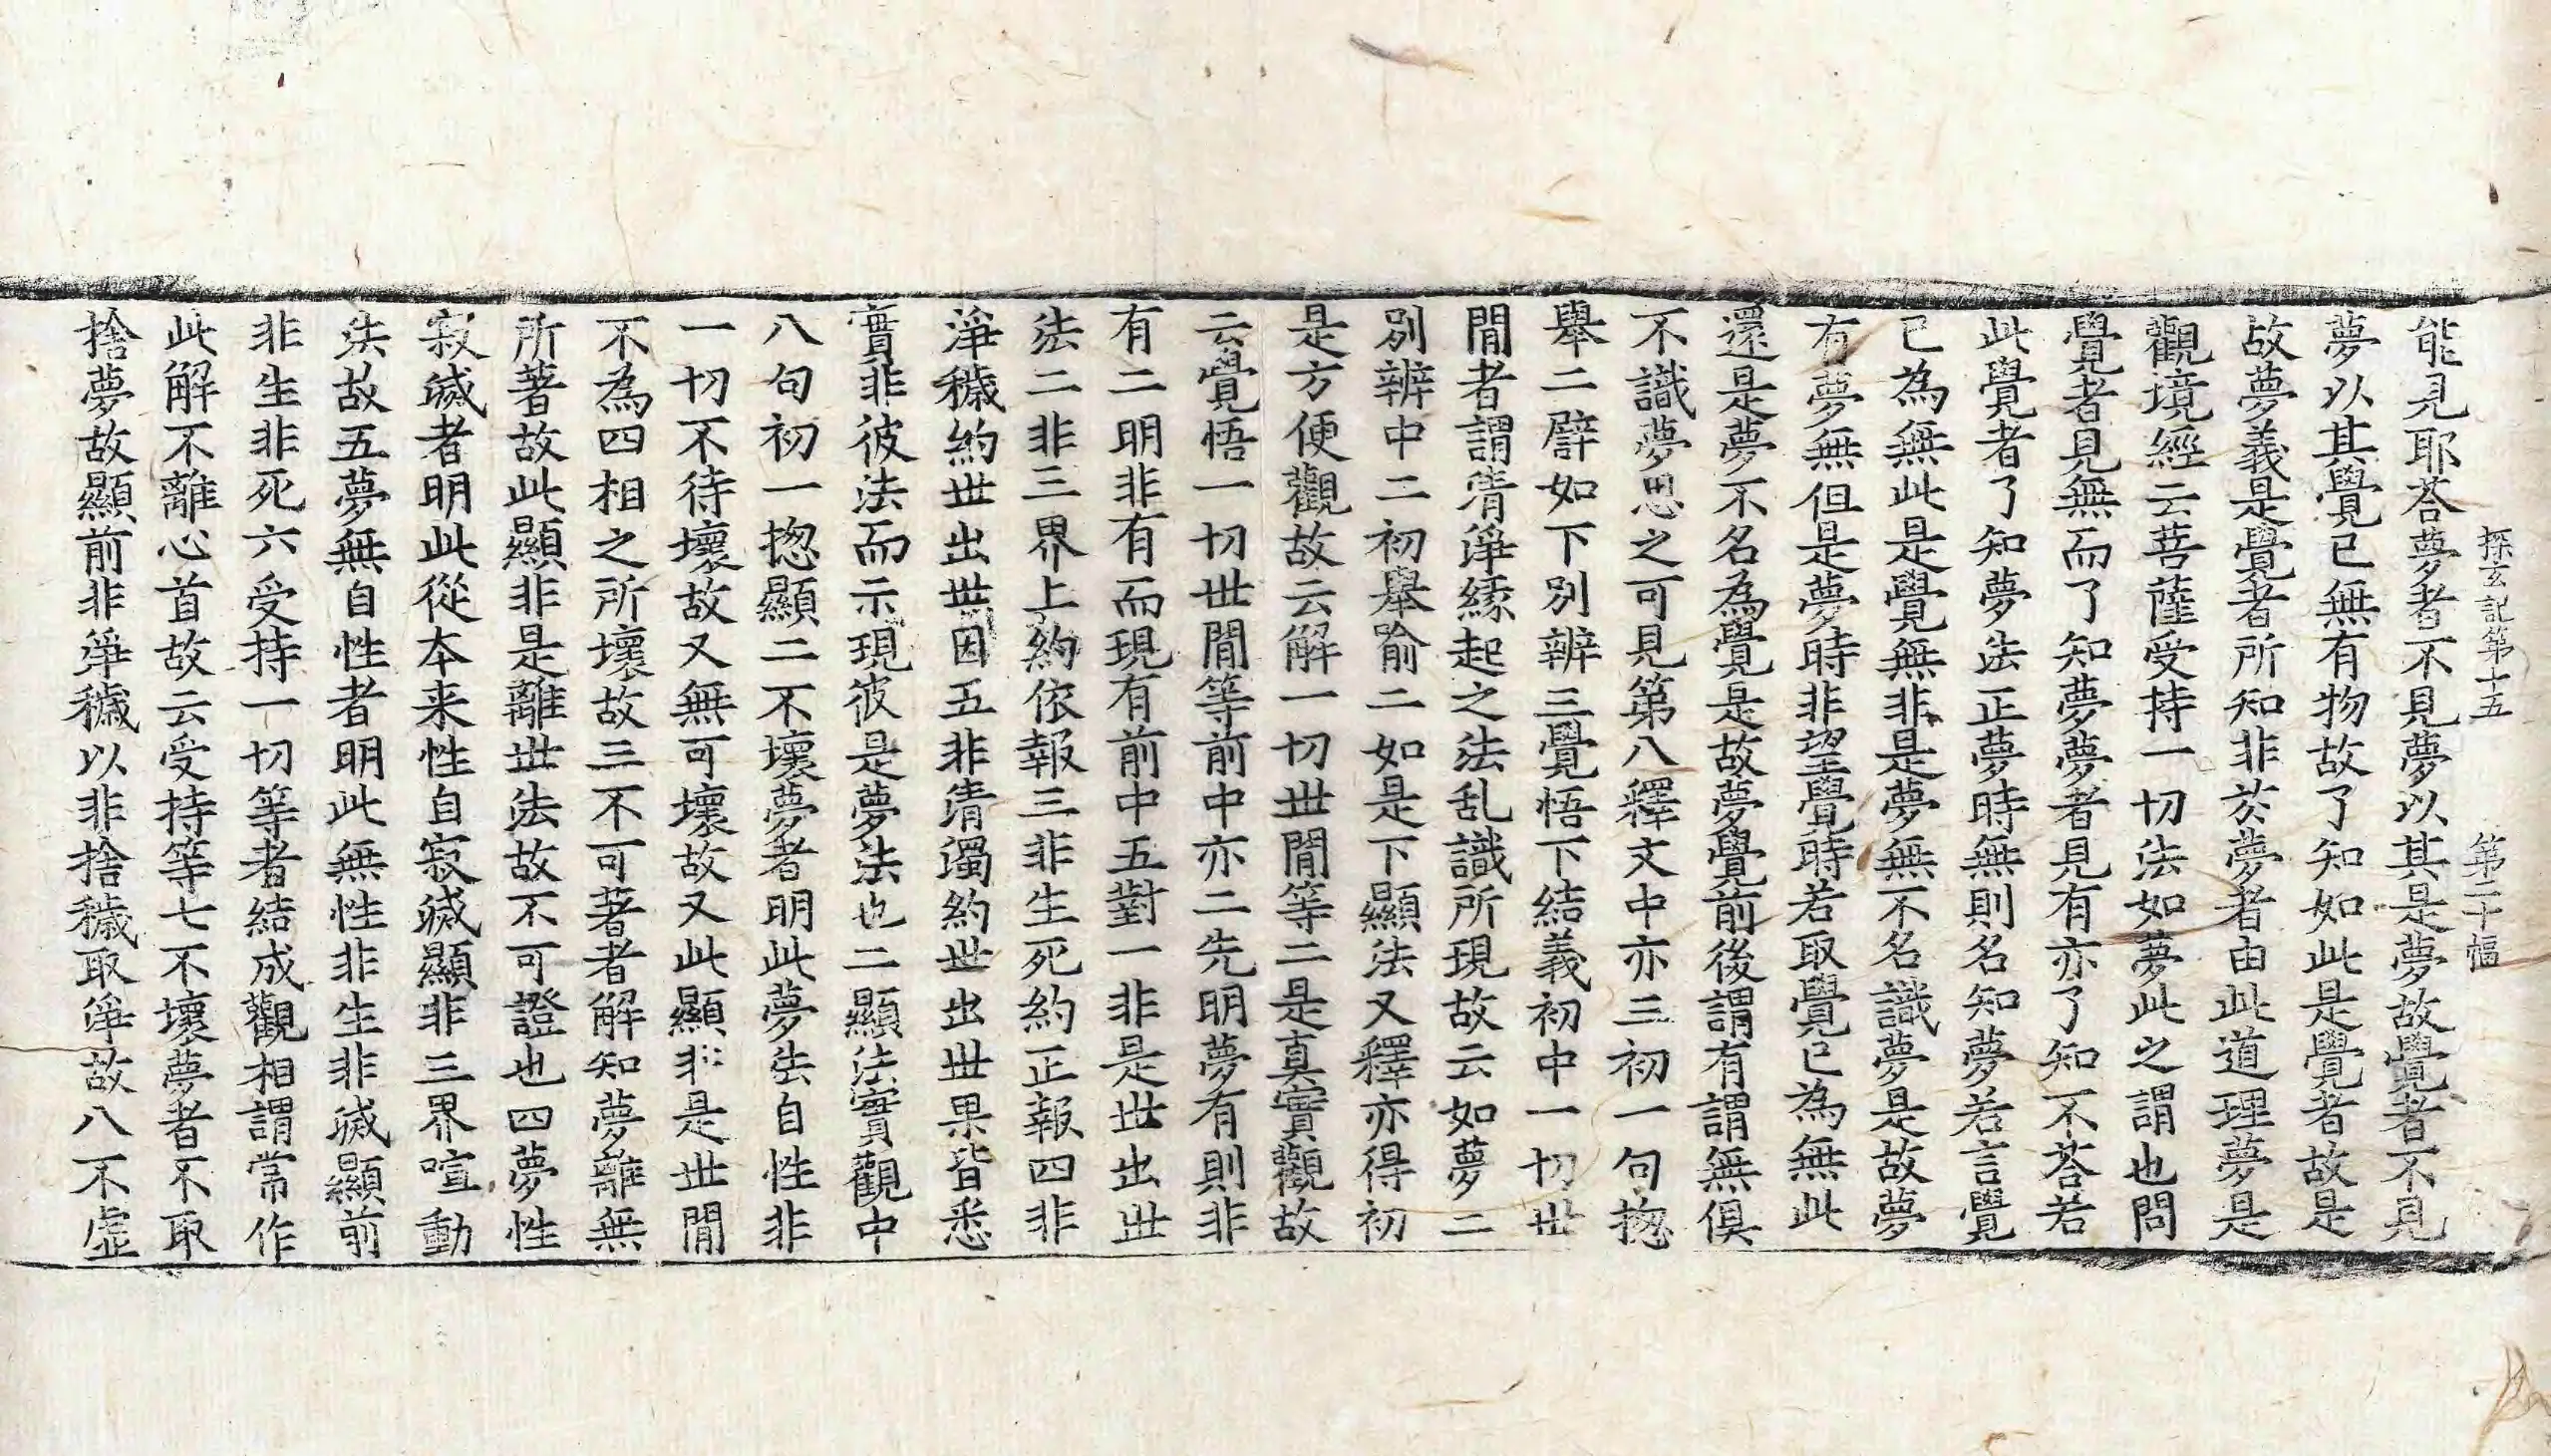 探玄記第十五 第二十幅
能見耶荅夢者不見夢以其是夢故覺者不見
夢以其覺已無有物故了知如此是覺者故是
故夢義是覺者所知非於夢者由此道理夢是
觀境經云菩薩受持一切法如夢此之謂也問
覺者見無而了知夢夢者見有亦了知不荅若
此覺者了知夢法正夢時無則名知夢若言覺
已為無此是覺無非是夢無不名識夢是故夢
有夢無但是夢時非望覺時若取覺已為無此
還是夢不名為覺是故夢覺前後謂有謂無俱
不識夢思之可見第八釋文中亦三初一句揔
舉二譬如下別辨三覺悟下結義初中一切世
閒者謂清淨緣起之法乱識所現故云如夢二
別辨中二初舉喻二如是下顯法又釋亦得初
是方便觀故云解一切世閒等二是真實觀故
云覺悟一切世閒等前中亦二先明夢有則非
有二明非有而現有前中五對一非是世出世
法二非三界上約依報三非生死約正報四非
淨穢約世出世因五非清濁約世出世果皆悉
實非彼法而示現彼是夢法也二顯法實觀中
八句初一揔顯二不壞夢者明此夢法自性非
一切不待壞故又無可壞故又此顯非是世閒
不為四相之所壞故三不可著者解知夢離無
所著故此顯非是離世法故不可證也四夢性
寂滅者明此從本来性自寂滅顯非三界喧動
法故五夢無自性者明此無性非生非滅顯前
非生非死六受持一切等者結成觀相謂常作
此解不離心首故云受持等七不壞夢者不取
捨夢故顯前非淨穢以非捨穢取淨故八不虛